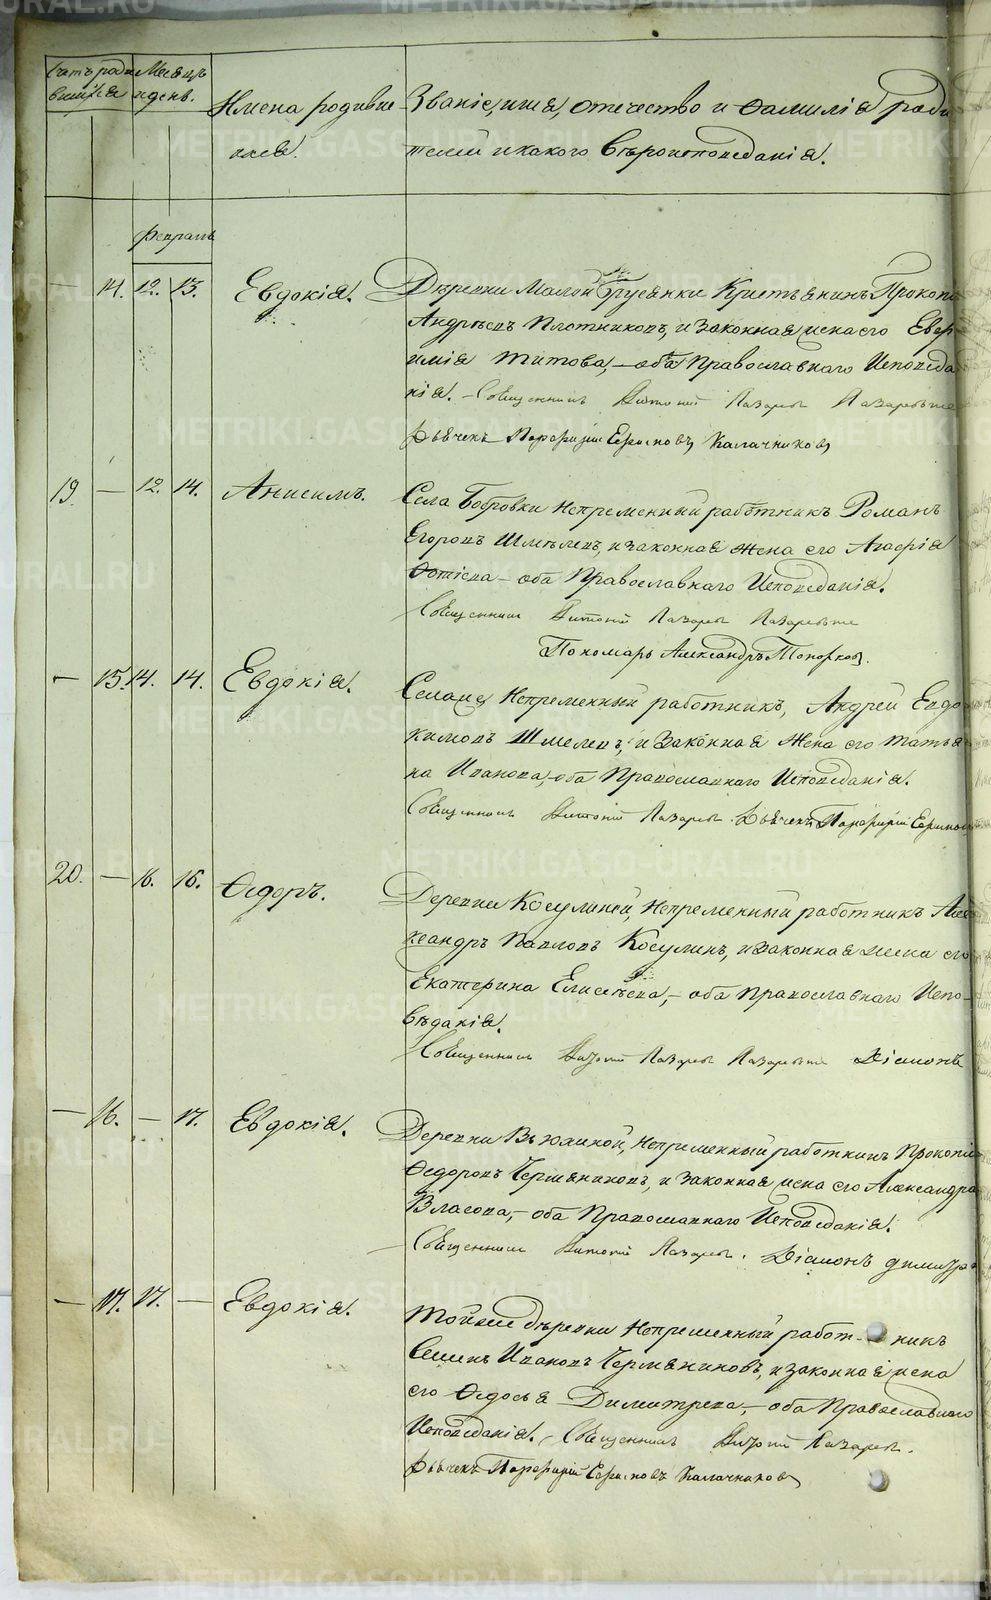 Счетъ роди Месяцъ
вшихся и день.
Имена родивши
хся.
Званіе, имя, отечество и фамилія роди
телей и какого вѣроисповеданія.
Февраль
— 14. 12. 13. Евдокія. Деревни Малой Брусянки Крестьянинъ Прокопій
Андрѣевъ Плотниковъ, и законная жена его Евфи
мія Титова, — оба Православнаго Исповеда
нія. — Священникъ Антоній Лазаревъ Лазаревъ же
Дьячекъ Порфирій Ефимовъ Калачниковъ
19. — 12. 14. Анисимъ. Села Бобровки Непременный работникъ Романъ
Егоровъ Шмелевъ, и законная жена его Агафія
Фотіева — оба Православнаго Исповеданія.
Священникъ Антоній Лазаревъ Лазаревъ же
Пономарь Александръ Топорковъ.
— 15. 14. 14. Евдокія. Села Непременный работникъ, Андрей Евдо
кимовъ Шмелевъ, и законная Жена его Татья
на Иванова, оба Православнаго Исповеданія.
Священникъ Антоній Лазаревъ. Дьячекъ Порфирій Ефимовъ
20. — 16. 16. Ѳедоръ. Деревни Косулиной, Непременный работникъ Алек
сандръ Павловъ Косулинъ, и законная жена его
Екатерина Елисѣева, — оба Православнаго Испо-
вѣданія.
Священникъ Антоній Лазаревъ Лазаревъ же Діаконъ
— 16. — 17. Евдокія. Деревни Вьюхиной, Непременный работникъ Прокопій
Ѳедоровъ Чермяниновъ, и законная жена его Александра
Власова, — оба Православнаго Исповеданія.
Священникъ Антоній Лазаревъ. Діаконъ Димитрій
— 17. 17. — Евдокія. Той же деревни Непременный работ- никъ
Семенъ Ивановъ Чермяниновъ, и законная жена
его Ѳедосья Димитрева, — оба Православнаго
Исповеданія. — Священникъ Антоній Лазаревъ.
Дьячекъ Порфирій Ефимовъ Калачниковъ
METRIKI.GASO-URAL.RU